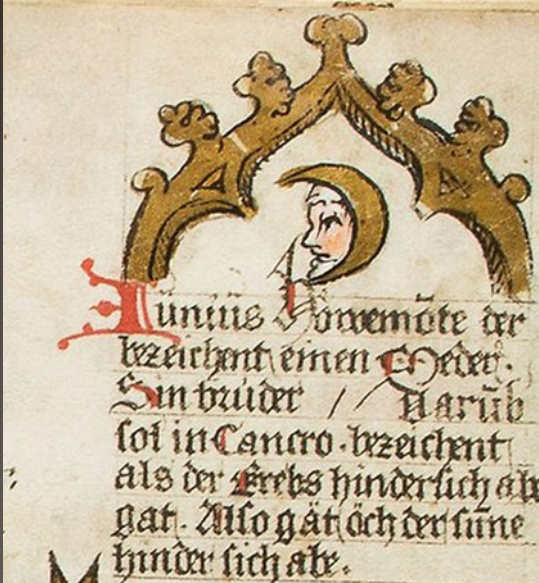 Junius Howemōte der
bezeichent einen Meder.
Sin bruder / Darūb
sol in Cancro. bezeichent
als der Krebs hindersich abe
gat. Also gāt ǒch der sune
hinder sich abe.
M